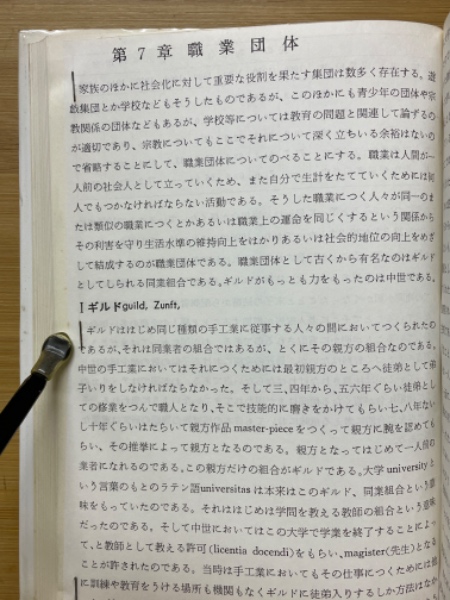 第7章 職業団体
家族のほかに社会化に対して重要な役割を果たす集団は数多く存在する。遊
戯集団とか学校などもそうしたものであるが、このほかにも青少年の団体や宗
教関係の団体などもあるが、学校等については教育の問題と関連して論ずるの
が適切であり、宗教についてもここでそれについて深く立ちいる余裕はないの
で省略することにして、職業団体についてのべることにする。職業は人間が一
人前の社会人として立っていくため、また自分で生計をたてていくためには何
人でもつかなければならない活動である。そうした職業につく人々が同一のま
たは類似の職業につくとかあるいは職業上の運命を同じくするという関係から
その利害を守り生活水準の維持向上をはかりあるいは社会的地位の向上をめざ
して結成するのが職業団体である。職業団体として古くから有名なのはギルド
としてしられる同業組合である。ギルドがもっとも力をもったのは中世である。
I ギルドguild, Zunft,
ギルドははじめ同じ種類の手工業に従事する人々の間においてつくられたの
であるが、それは同業者の組合ではあるが、とくにその親方の組合なのである。
中世の手工業においてはそれにつくためには最初親方のところへ徒弟として弟
子いりをしなければならなかった。そして三、四年から、五六年ぐらい徒弟とし
ての修業をつんで職人となり、そこで技能的に磨きをかけてもらい七、八年ない
し十年ぐらいはたらいて親方作品 master-piece をつくって親方に腕を認めても
らい、その推挙によって親方となるのである。親方となってはじめて一人前の
業者になれるのである。この親方だけの組合がギルドである。大学 university と
いう言葉のもとのラテン語universitas は本来はこのギルド、同業組合という意
味をもっていたのである。それははじめは学問を教える教師の組合という意味
だったのである。そして中世においてはこの大学で学業を終了することによっ
て、と教師として教える許可 (licentia docendi) をもらい、magister(先生)となる
ことが許されたのである。当時は手工業においてもその仕事につくためには他
に訓練や教育をうける場所も機関もなくギルドに徒弟入りするしか方法はなか